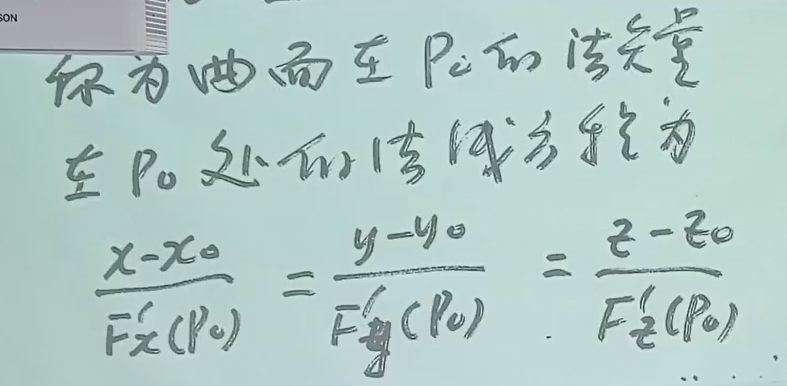 SON
称为曲面在 P₀ 的法矢量
在 P₀ 处的法线方程为
x-x₀/F'x(P₀) = y-y₀/F'y(P₀) = z-z₀/F'z(P₀)